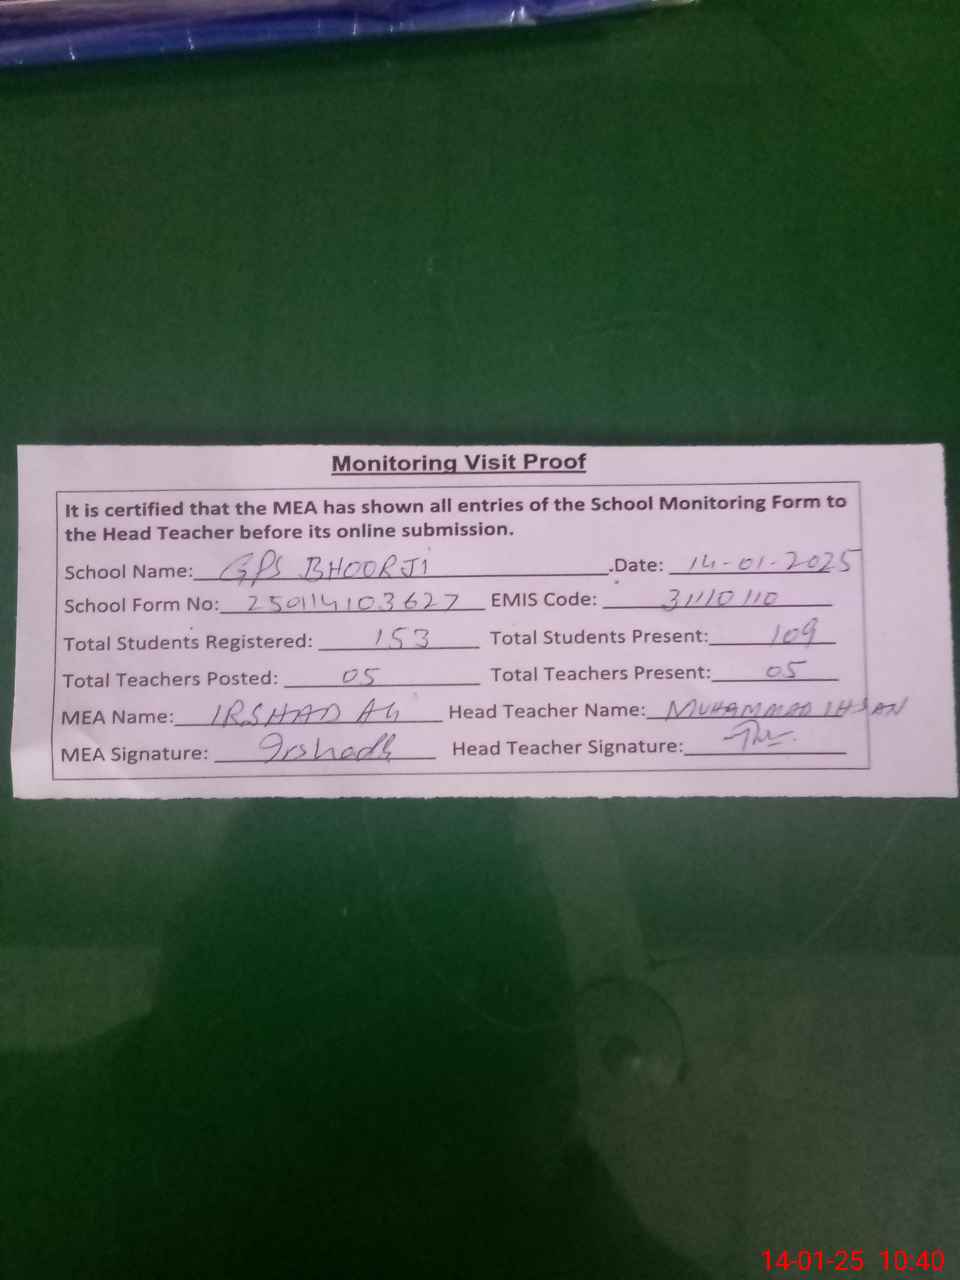 Monitoring Visit Proof
It is certified that the MEA has shown all entries of the School Monitoring Form to
the Head Teacher before its online submission.
School Name: GPS BHOORJI .Date: 14-01-2025
School Form No: 250114103627 EMIS Code: 31110110
Total Students Registered: 153 Total Students Present: 109
Total Teachers Posted: 05 Total Teachers Present: 05
MEA Name: IRSHAD Ali Head Teacher Name: MUHAMMAD IHSAN
MEA Signature: Irshad Head Teacher Signature:
14-01-25 10:40